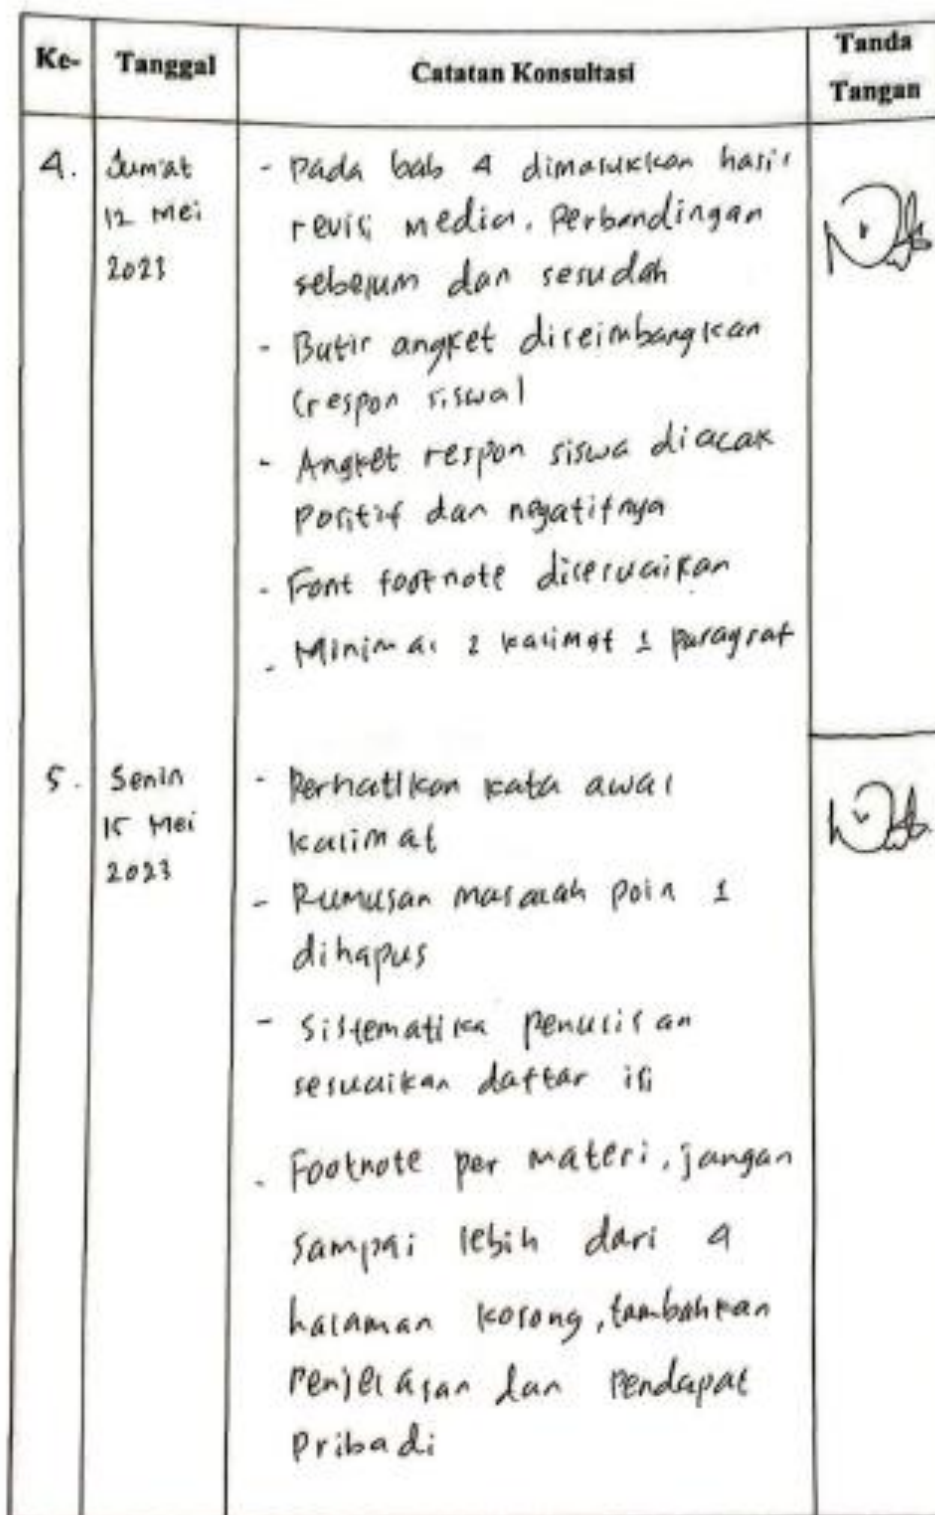 Ke- Tanggal Catatan Konsultasi Tanda Tangan
4. Jum'at 12 Mei 2023
- Pada bab 4 dimasukkan hasil
revisi media. Perbandingan
sebelum dan sesudah
- Butir angket diseimbangkan
(respon siswa)
- Angket respon siswa diacak
positif dan negatifnya
- Font footnote disesuaikan
- Minimal 2 kalimat 1 paragraf
5. Senin 15 Mei 2023
- Perhatikan kata awal
kalimat
- Rumusan masalah poin 1
dihapus
- Sistematika penulisan
sesuaikan daftar isi
- Footnote per materi, jangan
sampai lebih dari 4
halaman kosong, tambahkan
penjelasan dan pendapat
pribadi